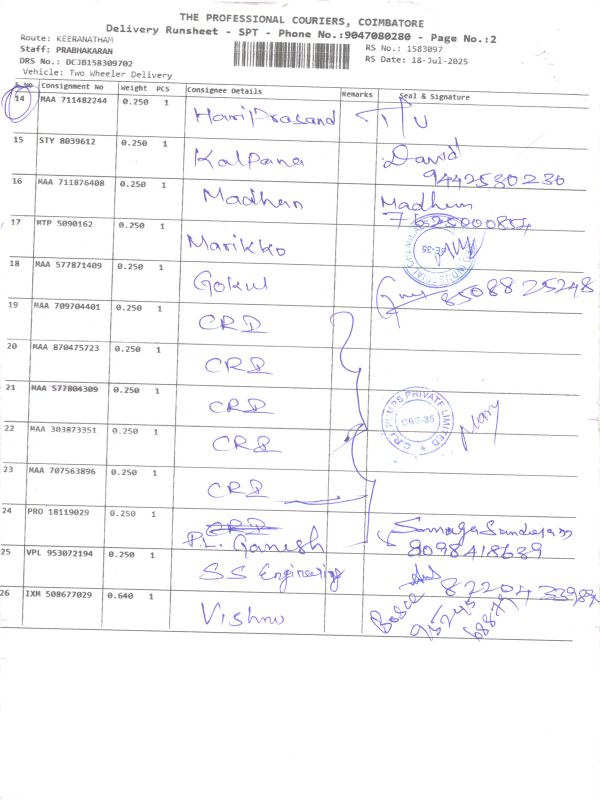 THE PROFESSIONAL COURIERS, COIMBATORE
Delivery Runsheet - SPT - Phone No.:9047080280 - Page No.:2
Route: KEERANATHAM
Staff: PRABHAKARAN
RS No.: 1583097
DRS No.: DCJB158309702
RS Date: 18-Jul-2025
Vehicle: Two Wheeler Delivery
S.No Consignment No Weight PCS Consignee Details Remarks Seal & Signature
14 MAA 711482244 0.250 1 Hari Prasand
15 STY 8039612 0.250 1 Kalpana David
9442530230
16 MAA 711876408 0.250 1 Madhan Madhan
17 MTP 5090162 0.250 1 Marikko
18 MAA 577871409 0.250 1 Gokul 85088 25248
19 MAA 709704401 0.250 1 CRI
20 MAA 870475723 0.250 1 CRI
21 MAA 577804309 0.250 1 CRI
C.R.I. PUMPS PRIVATE LIMITED
CBE-35
22 MAA 303873351 0.250 1 CRI
23 MAA 707563896 0.250 1 CRI
24 PRO 18119029 0.250 1 CRI
P.L. Ganesh
8098418689
25 VPL 953072194 0.250 1 SS Engineering
26 IXM 508677029 0.640 1 Vishnu